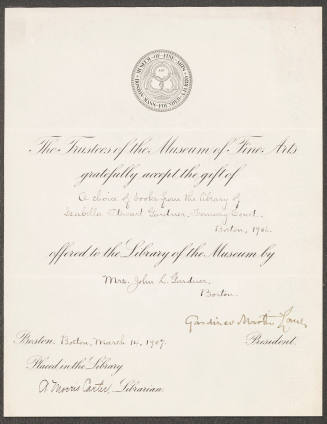 MUSEUM · OF · FINE · ARTS
BOSTON · MASS · FOUNDED
The Trustees of the Museum of Fine Arts
gratefully accept the gift of
A choice of books from the library of
Isabella Stewart Gardner, Fenway Court.
Boston, 1906.
offered to the Library of the Museum by
Mrs. John L. Gardner,
Boston.
Gardiner Martin Lane,
President.
Boston. Boston, March 14, 1907.
Placed in the Library
A Morris Carter, Librarian.